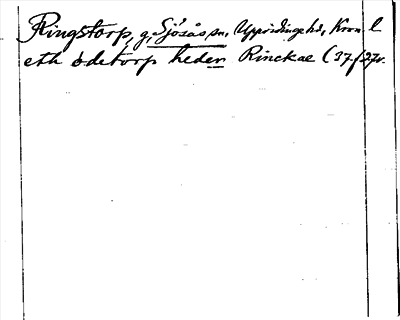 Ringstorp, g, Sjösås sn, Uppvidinge hd, Kron l
eth ödetorp heder Rinckae (37/27v.